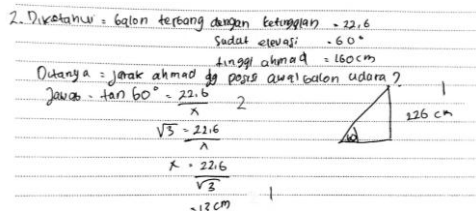 2. Diketahui = balon terbang dengan ketinggian = 22,6
Sudut elevasi = 60°
tinggi ahmad = 160 cm
Ditanya = jarak ahmad dg posisi awal balon udara?
Jawab = tan 60° = 22,6 / x 2
√3 = 22,6 / x
x = 22,6 / √3
= 13 cm 1
1
226 cm
60